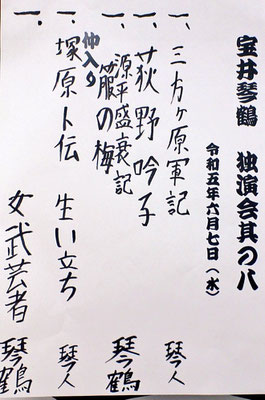 宝井琴鶴 独演会其の八
令和五年六月七日(水)
一、三方ヶ原軍記 琴人
一、荻野吟子 琴鶴
一、源平盛衰記
箙の梅
仲入り
一、塚原卜伝 生い立ち 琴人
一、女武芸者 琴鶴